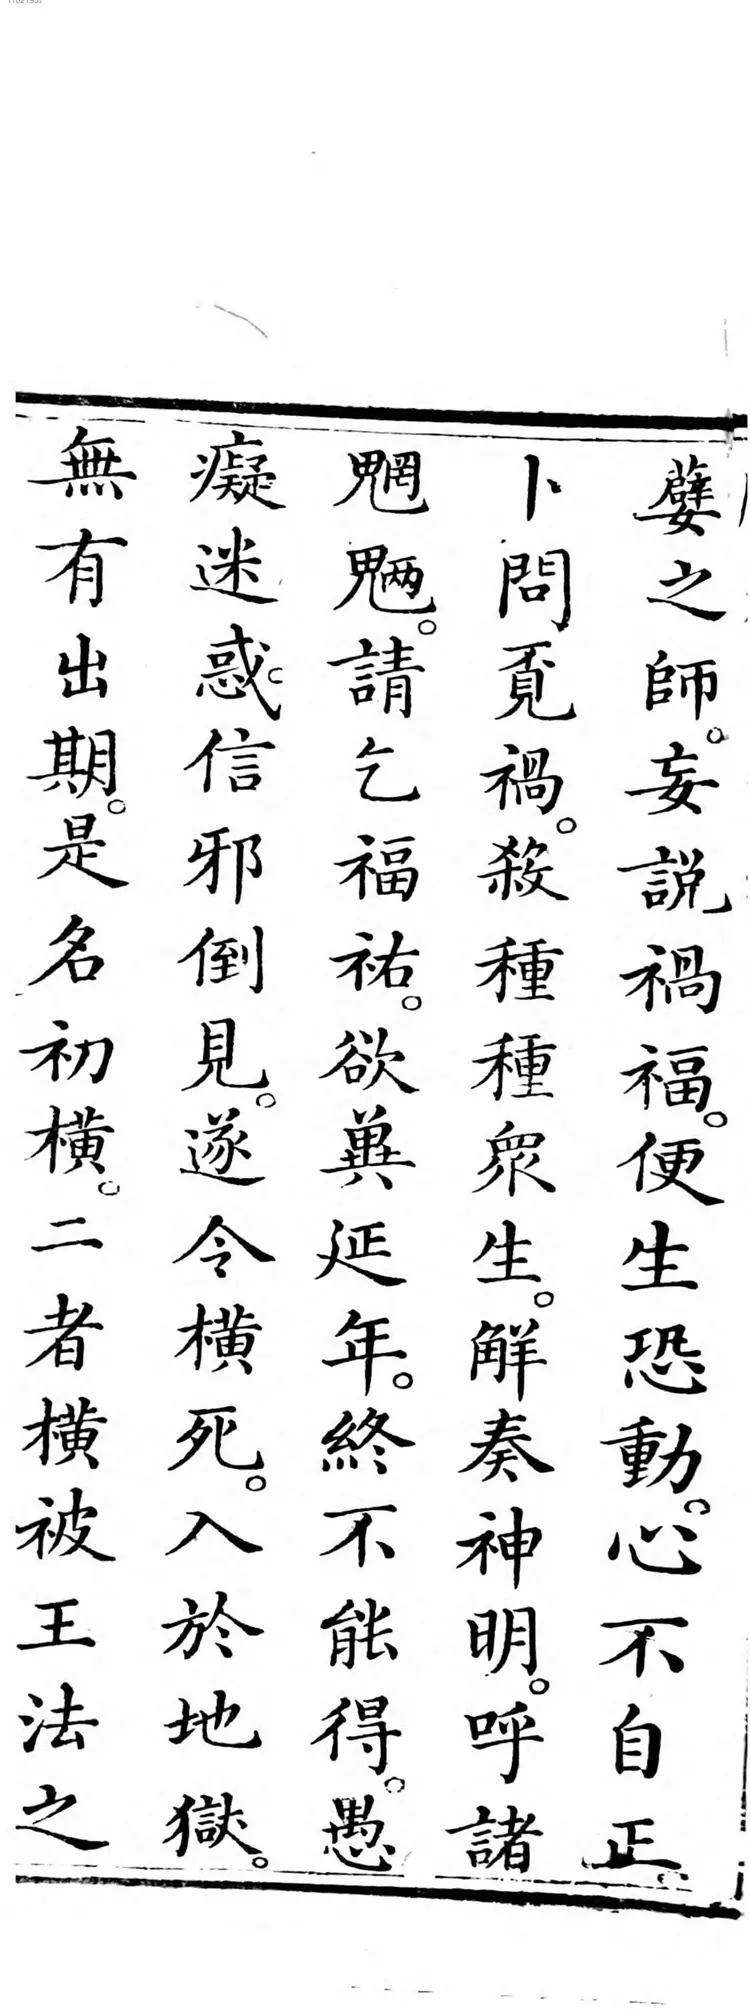 11021937
孽之師。妄説禍福。便生恐動。心不自正。
卜問覓禍。殺種種衆生。觧奏神明。呼諸
魍魎。請乞福祐。欲兾延年。終不能得。愚
癡迷惑。信邪倒見。遂令橫死。入於地獄。
無有出期。是名初橫。二者橫被王法之